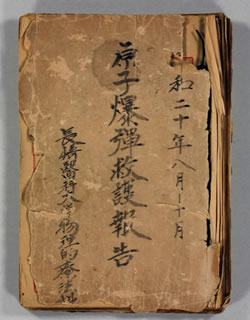 昭和二十年八月—十月
原子爆彈救護報告
長崎醫科大学物理的療法科